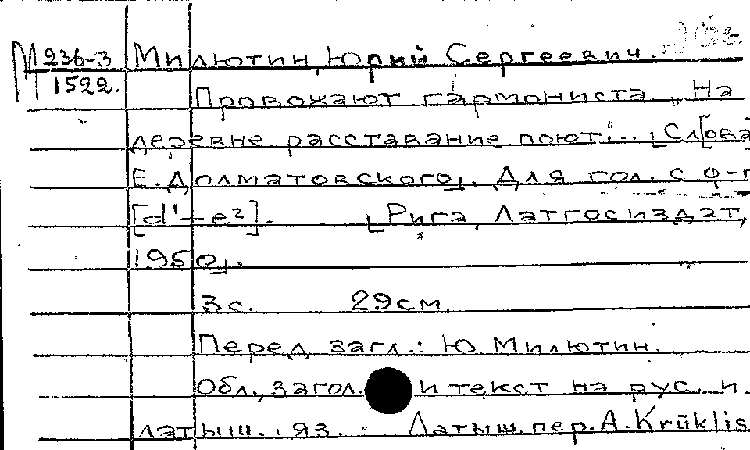 М 236-3 Милютин, Юрий Сергеевич.
1522.
Провожают гармониста. На
деревне расставание поют... [Слова
Е. Долматовского]. Для гол. с ф-п
[d¹-e²]. [Рига, Латгосиздат,
1950].
3 с. 29 см
Перед загл.: Ю. Милютин.
Обл., загол. и текст на рус. и
латыш. яз. Латыш. пер. A. Krūklis